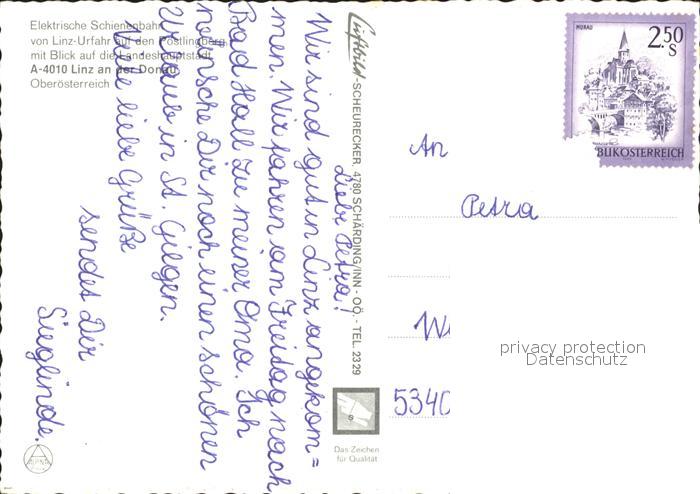 Elektrische Schienenbahn
von Linz-Urfahr auf den Pöstlingberg
mit Blick auf die Landeshauptstadt
A-4010 Linz an der Donau
Oberösterreich
Liebe Petra!
Wir sind gut in Linz angekom=
men. Wir fahren am Freitag nach
Bad Hall zu meiner Oma. Ich
wünsche Dir noch einen schönen
Urlaub in St. Gilgen.
Viele liebe Grüße
sendet Dir
Sieglinde.
Luftbild-SCHEURECKER, 4780 SCHÄRDING/INN - OÖ. - TEL. 2329
Das Zeichen
für Qualität
MURAU
2.50
S
REPUBLIK ÖSTERREICH
An
Petra
5340
privacy protection
Datenschutz